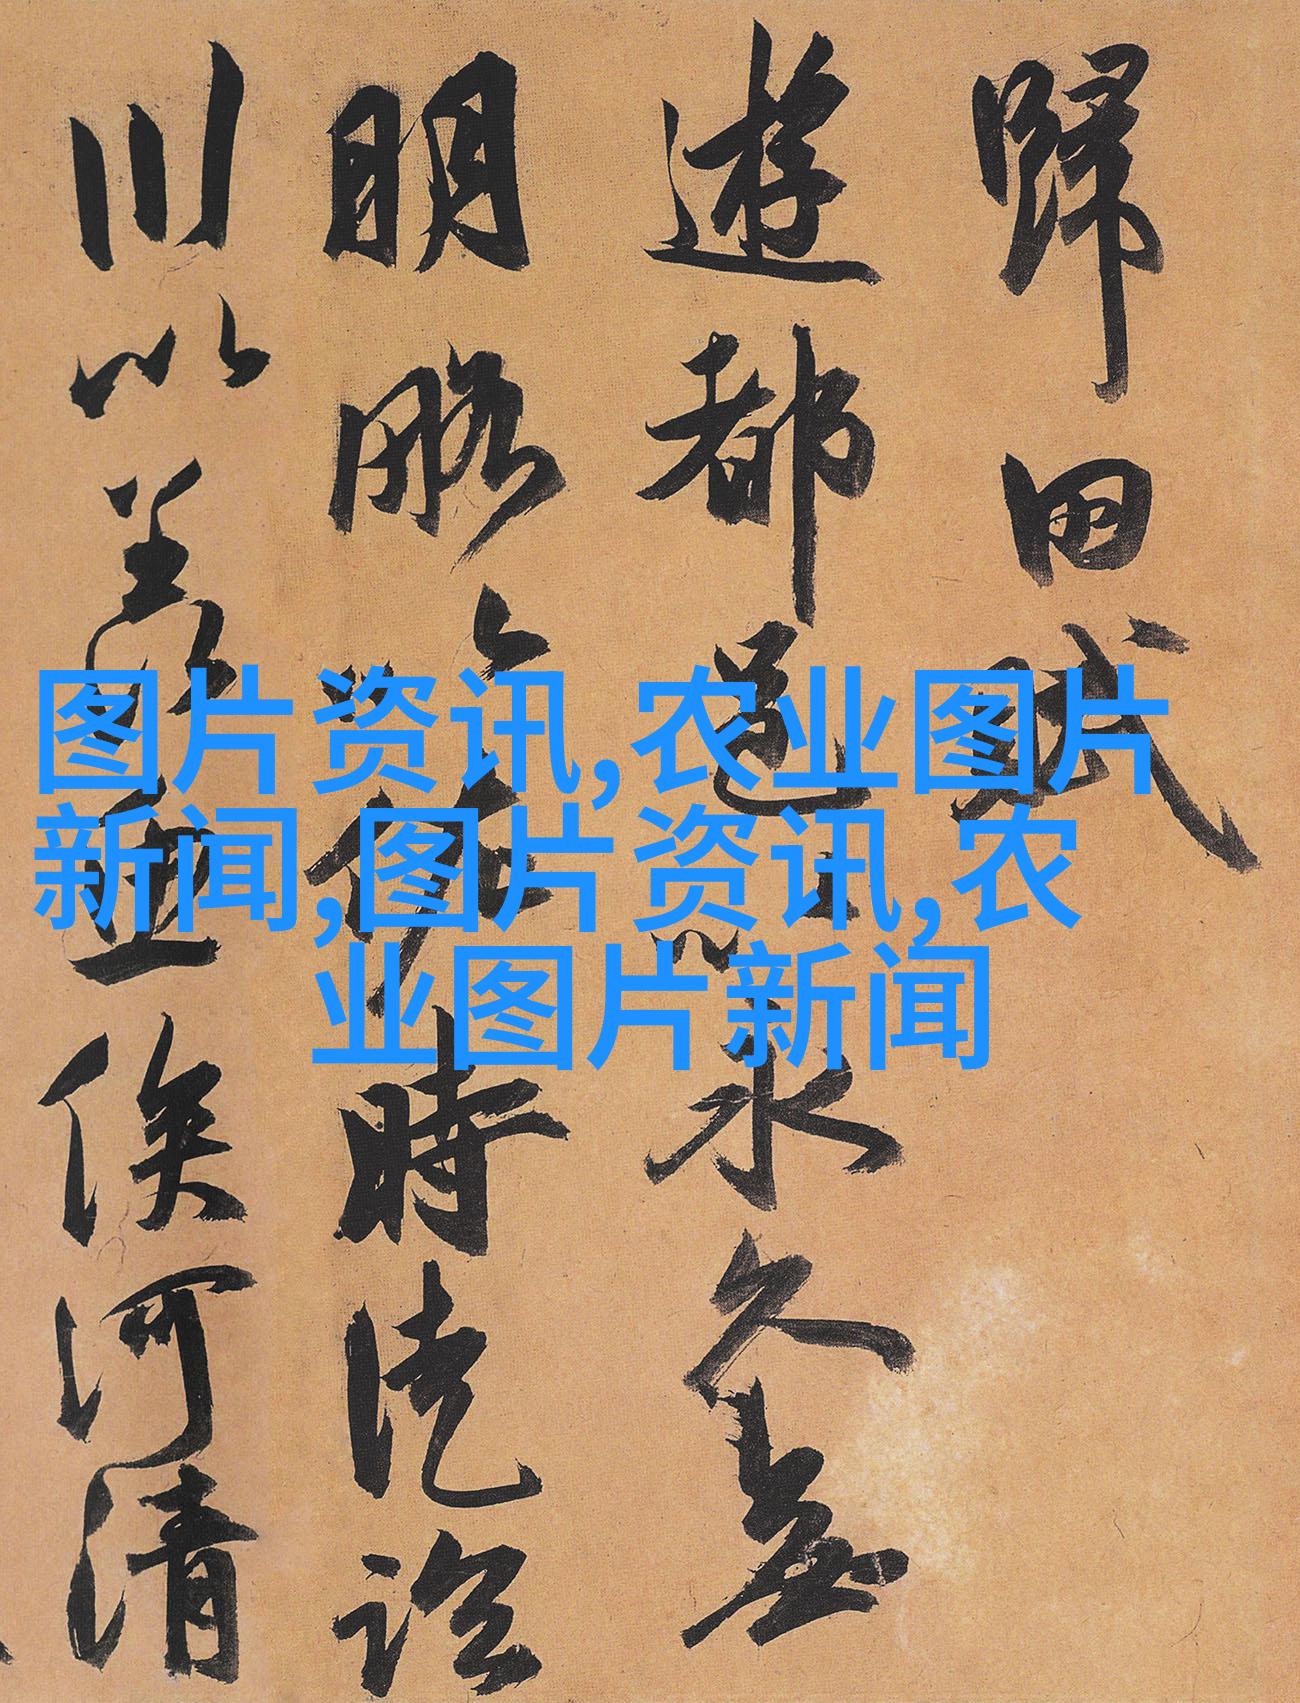 歸田賦
遊都邑以永久無
明略以佐時徒臨
川以羨魚俟河清
图片资讯,农业图片
新闻,图片资讯,农
业图片新闻